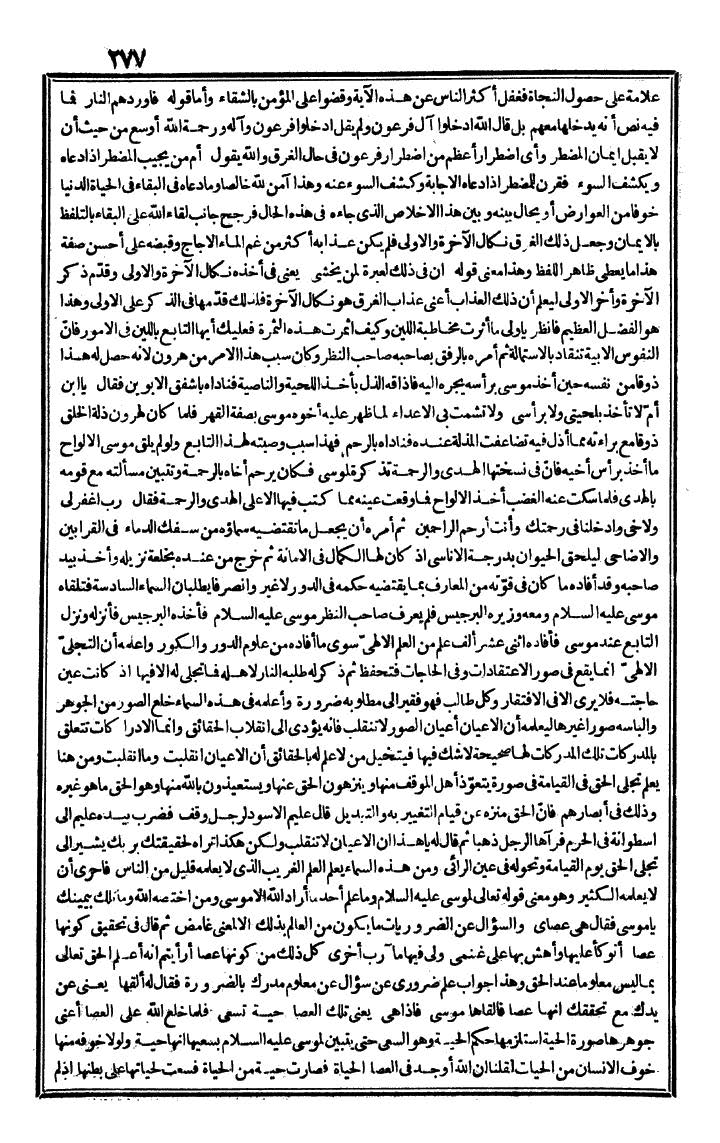 ٢٧٧
علامة على حصول النجاة فغفل أكثر الناس عن هذه الآية وقضوا على المؤمن بالشقاء وأما قوله فاوردهم النار فما
فيه نص أنه يدخلها معهم بل قال الله ادخلوا آل فرعون ولم يقل ادخلوا فرعون وآله ورحمة الله أوسع من حيث أن
لا يقبل ايمان المضطر وأى اضطرار أعظم من اضطرار فرعون فى حال الغرق والله يقول أم من يجيب المضطر اذا دعاه
ويكشف السوء فقرن للمضطر اذا دعاه الاجابة وكشف السوء عنه وهذا آمن لله خالصا وما دعاه فى البقاء فى الحياة الدنيا
خوفا من العوارض أو يحال بينه وبين هذا الاخلاص الذى جاءه فى هذه الحال فرجح جانب لقاء الله على البقاء بالتلفظ
بالايمان وجعل ذلك الغرق نكال الآخرة والاولى فلم يكن عذابه أكثر من غم الماء الاجاج وقبضه على أحسن صفة
هذا ما يعطى ظاهر اللفظ وهذا معنى قوله ان فى ذلك لعبرة لمن يخشى يعنى فى أخذه نكال الآخرة والاولى وقدّم ذكر
الآخرة وأخر الاولى ليعلم أن ذلك العذاب أعنى عذاب الغرق هو نكال الآخرة فلذلك قدّمها فى الذكر على الاولى وهذا
هو الفضل العظيم فانظر ياولى ما أثرت مخاطبة اللين وكيف اثمرت هذه الثمرة فعليك أيها التابع باللين فى الامور فانّ
النفوس الابية تنقاد بالاستمالة ثم أمره بالرفق بصاحبه صاحب النظر وكان سبب هذا الامر من هرون لانه حصل له هذا
ذوقا من نفسه حين أخذ موسى برأسه يجره اليه فاذاقه الذل بأخذ اللحية والناصية فناداه باشفق الابوين فقال يا ابن
أمّ لا تأخذ بلحيتى ولا برأسى ولا تشمت بى الاعداء لما ظهر عليه أخوه موسى بصفة القهر فلما كان لهرون ذلة الخلق
ذوقا مع براءته مما أذل فيه تضاعفت المذلة عنده فناداه بالرحم فهذا سبب وصيته لهذا التابع ولو لم يلق موسى الالواح
ما أخذ برأس أخيه فانّ فى نسختها الهدى والرحمة تذكرة لموسى فكان يرحم أخاه بالرحمة وتتبين مسألته مع قومه
بالهدى فلما سكت عنه الغضب أخذ الالواح فما وقعت عينه مما كتب فيها الا على الهدى والرحمة فقال رب اغفر لى
ولاخى وادخلنا فى رحمتك وأنت أرحم الراحمين ثم أمره أن يجعل ما تقتضيه سماؤه من سفك الدماء فى القرابين
والاضاحى ليلحق الحيوان بدرجة الاناسى اذ كان لها الكمال فى الامانة ثم خرج من عنده بخلعة نزيله وأخذ بيد
صاحبه وقد أفاده ما كان فى قوّته من المعارف بما يقتضيه حكمه فى الدور لاغير وانصرفا يطلبان السماء السادسة فتلقاه
موسى عليه السلام ومعه وزيره البرجيس فلم يعرف صاحب النظر موسى عليه السلام فأخذه البرجيس فأنزله ونزل
التابع عند موسى فأفاده اثنى عشر ألف علم من العلم الالهىّ سوى ما أفاده من علوم الدور والكور واعلمه أن التجلىّ
الالهىّ انما يقع فى صور الاعتقادات وفى الحاجات فتحفظ ثم ذكر له طلبه النار لاهله فما تجلى له الا فيها اذ كانت عين
حاجته فلا يرى الا فى الافتقار وكل طالب فهو فقير الى مطلوبه ضرورة وأعلمه فى هذه السماء خلع الصور من الجوهر
والباسه صورا غيرها ليعلمه أن الاعيان أعيان الصور لا تنقلب فانه يؤدى الى انقلاب الحقائق وانما الادراكات تتعلق
بالمدركات تلك المدركات لها صحيحة لاشك فيها فيتخيل من لا علم له بالحقائق أن الاعيان انقلبت وما انقلبت ومن هنا
يعلم تجلى الحق فى القيامة فى صورة يتعوّذ أهل الموقف منها وينزهون الحق عنها ويستعيذون بالله منها وهو الحق ما هو غيره
وذلك فى أبصارهم فانّ الحق منزه عن قيام التغيير به والتبديل قال عليم الاسود لرجل وقف فضرب بيده عليم الى
اسطوانة فى الحرم فرآها الرجل ذهبا ثم قال له ياهذا ان الاعيان لا تنقلب ولكن هكذا تراه لحقيقتك بربك يشير الى
تجلى الحق يوم القيامة وتحوله فى عين الرائى ومن هذه السماء يعلم العلم الغريب الذى لا يعلمه قليل من الناس فاحرى أن
لا يعلمه الكثير وهو معنى قوله تعالى لموسى عليه السلام وما علم أحد ما أراد الله الا موسى ومن اختصه الله وما تلك بيمينك
ياموسى فقال هى عصاى والسؤال عن الضروريات ما يكون من العالم بذلك الا لمعنى غامض ثم قال فى تحقيق كونها
عصا أتوكأ عليها وأهش بها على غنمى ولى فيها مآرب أخرى كل ذلك من كونها عصا أرأيتم انه أعلم الحق تعالى
بما ليس معلوما عند الحق وهذا جواب علم ضرورى عن سؤال عن معلوم مدرك بالضرورة فقال له ألقها يعنى عن
يدك مع تحققك انها عصا فالقاها موسى فاذا هى يعنى تلك العصا حية تسعى فلما خلع الله على العصا أعنى
جوهرها صورة الحية استلزمها حكم الحية وهو السعى حتى يتبين لموسى عليه السلام بسعيها انها حية ولولا خوفه منها
خوف الانسان من الحيات لقلنا ان الله أوجد فى العصا الحياة فصارت حية من الحياة فسعت لحياتها على بطنها اذ لم